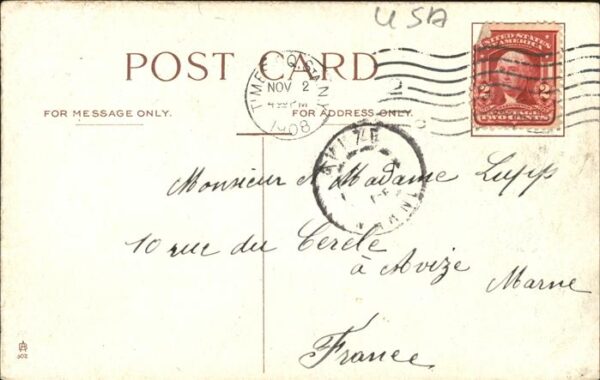 USA
POST CARD
TIMES SQ. STA. N.Y.
NOV 2
PM
1908
UNITED STATES
OF AMERICA
2 2
POSTAGE
TWO CENTS
FOR MESSAGE ONLY.
FOR ADDRESS ONLY.
AVIZE
MARNE
Monsieur et Madame Lupp
10 rue du Cercle
à Avize
Marne
France
602